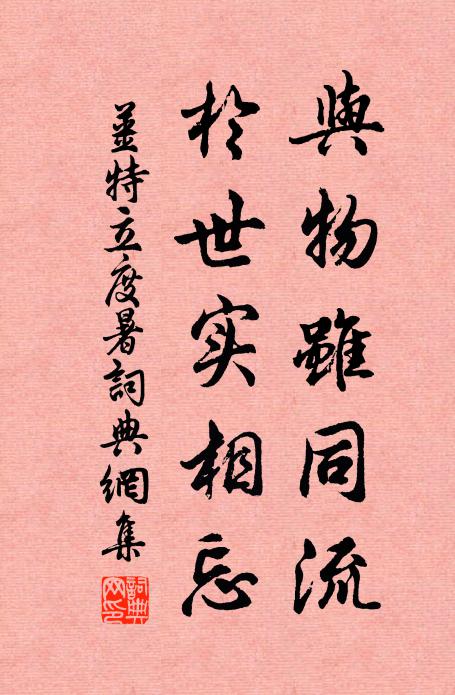 與物雖同流
於世实相忘
姜特立度暑詞典網集
詞典网印